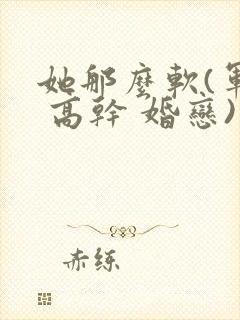 她那麼軟(軍
高幹 婚戀)
赤练